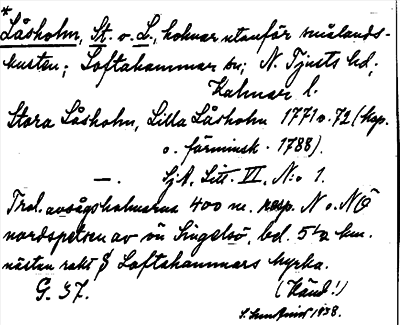 *
Låsholm, St. o. L., holmar utanför smålands-
kusten; Loftahammar sn; N. Tjusts hd;
Kalmar l.
Stora Låsholm, Lilla Låsholm 1771 o. 72 (kop.
o. förminsk. 1788).
—. SjA, Litt. VI, N:o 1.
Trol. avsågs holmarna 400 m. resp. N o. NÖ
nordspetsen av ön Singelsö, bel. 5 1/2 km.
nästan rakt S Loftahammars kyrka.
G. 37. (Känd!)
1938.